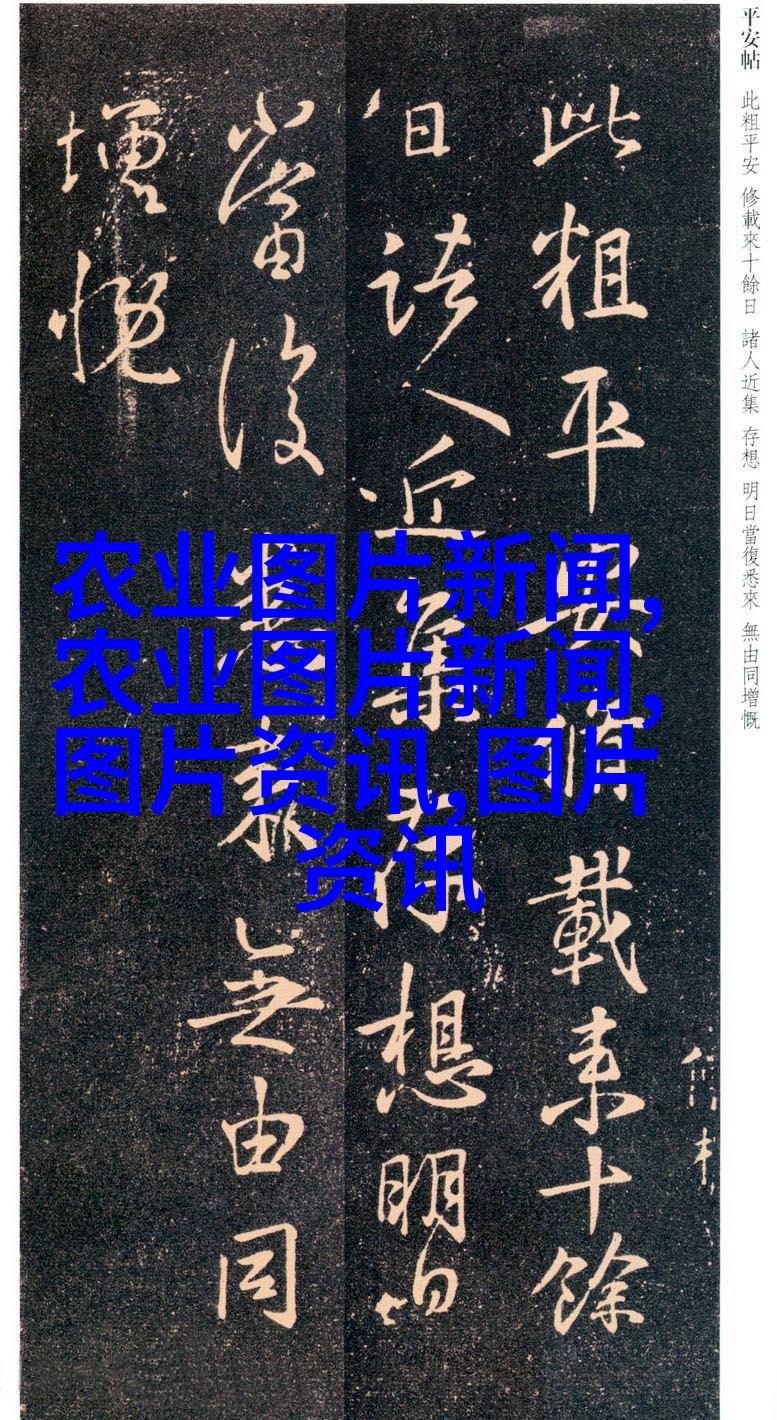 平安帖 此粗平安 修載來十餘日 諸人近集 存想 明日當復悉來 無由同增慨
此粗平安脩載来十餘
日諸人近集存想明日
當復悉來無由同
增慨
农业图片新闻,
农业图片新闻,
图片资讯,图片
资讯